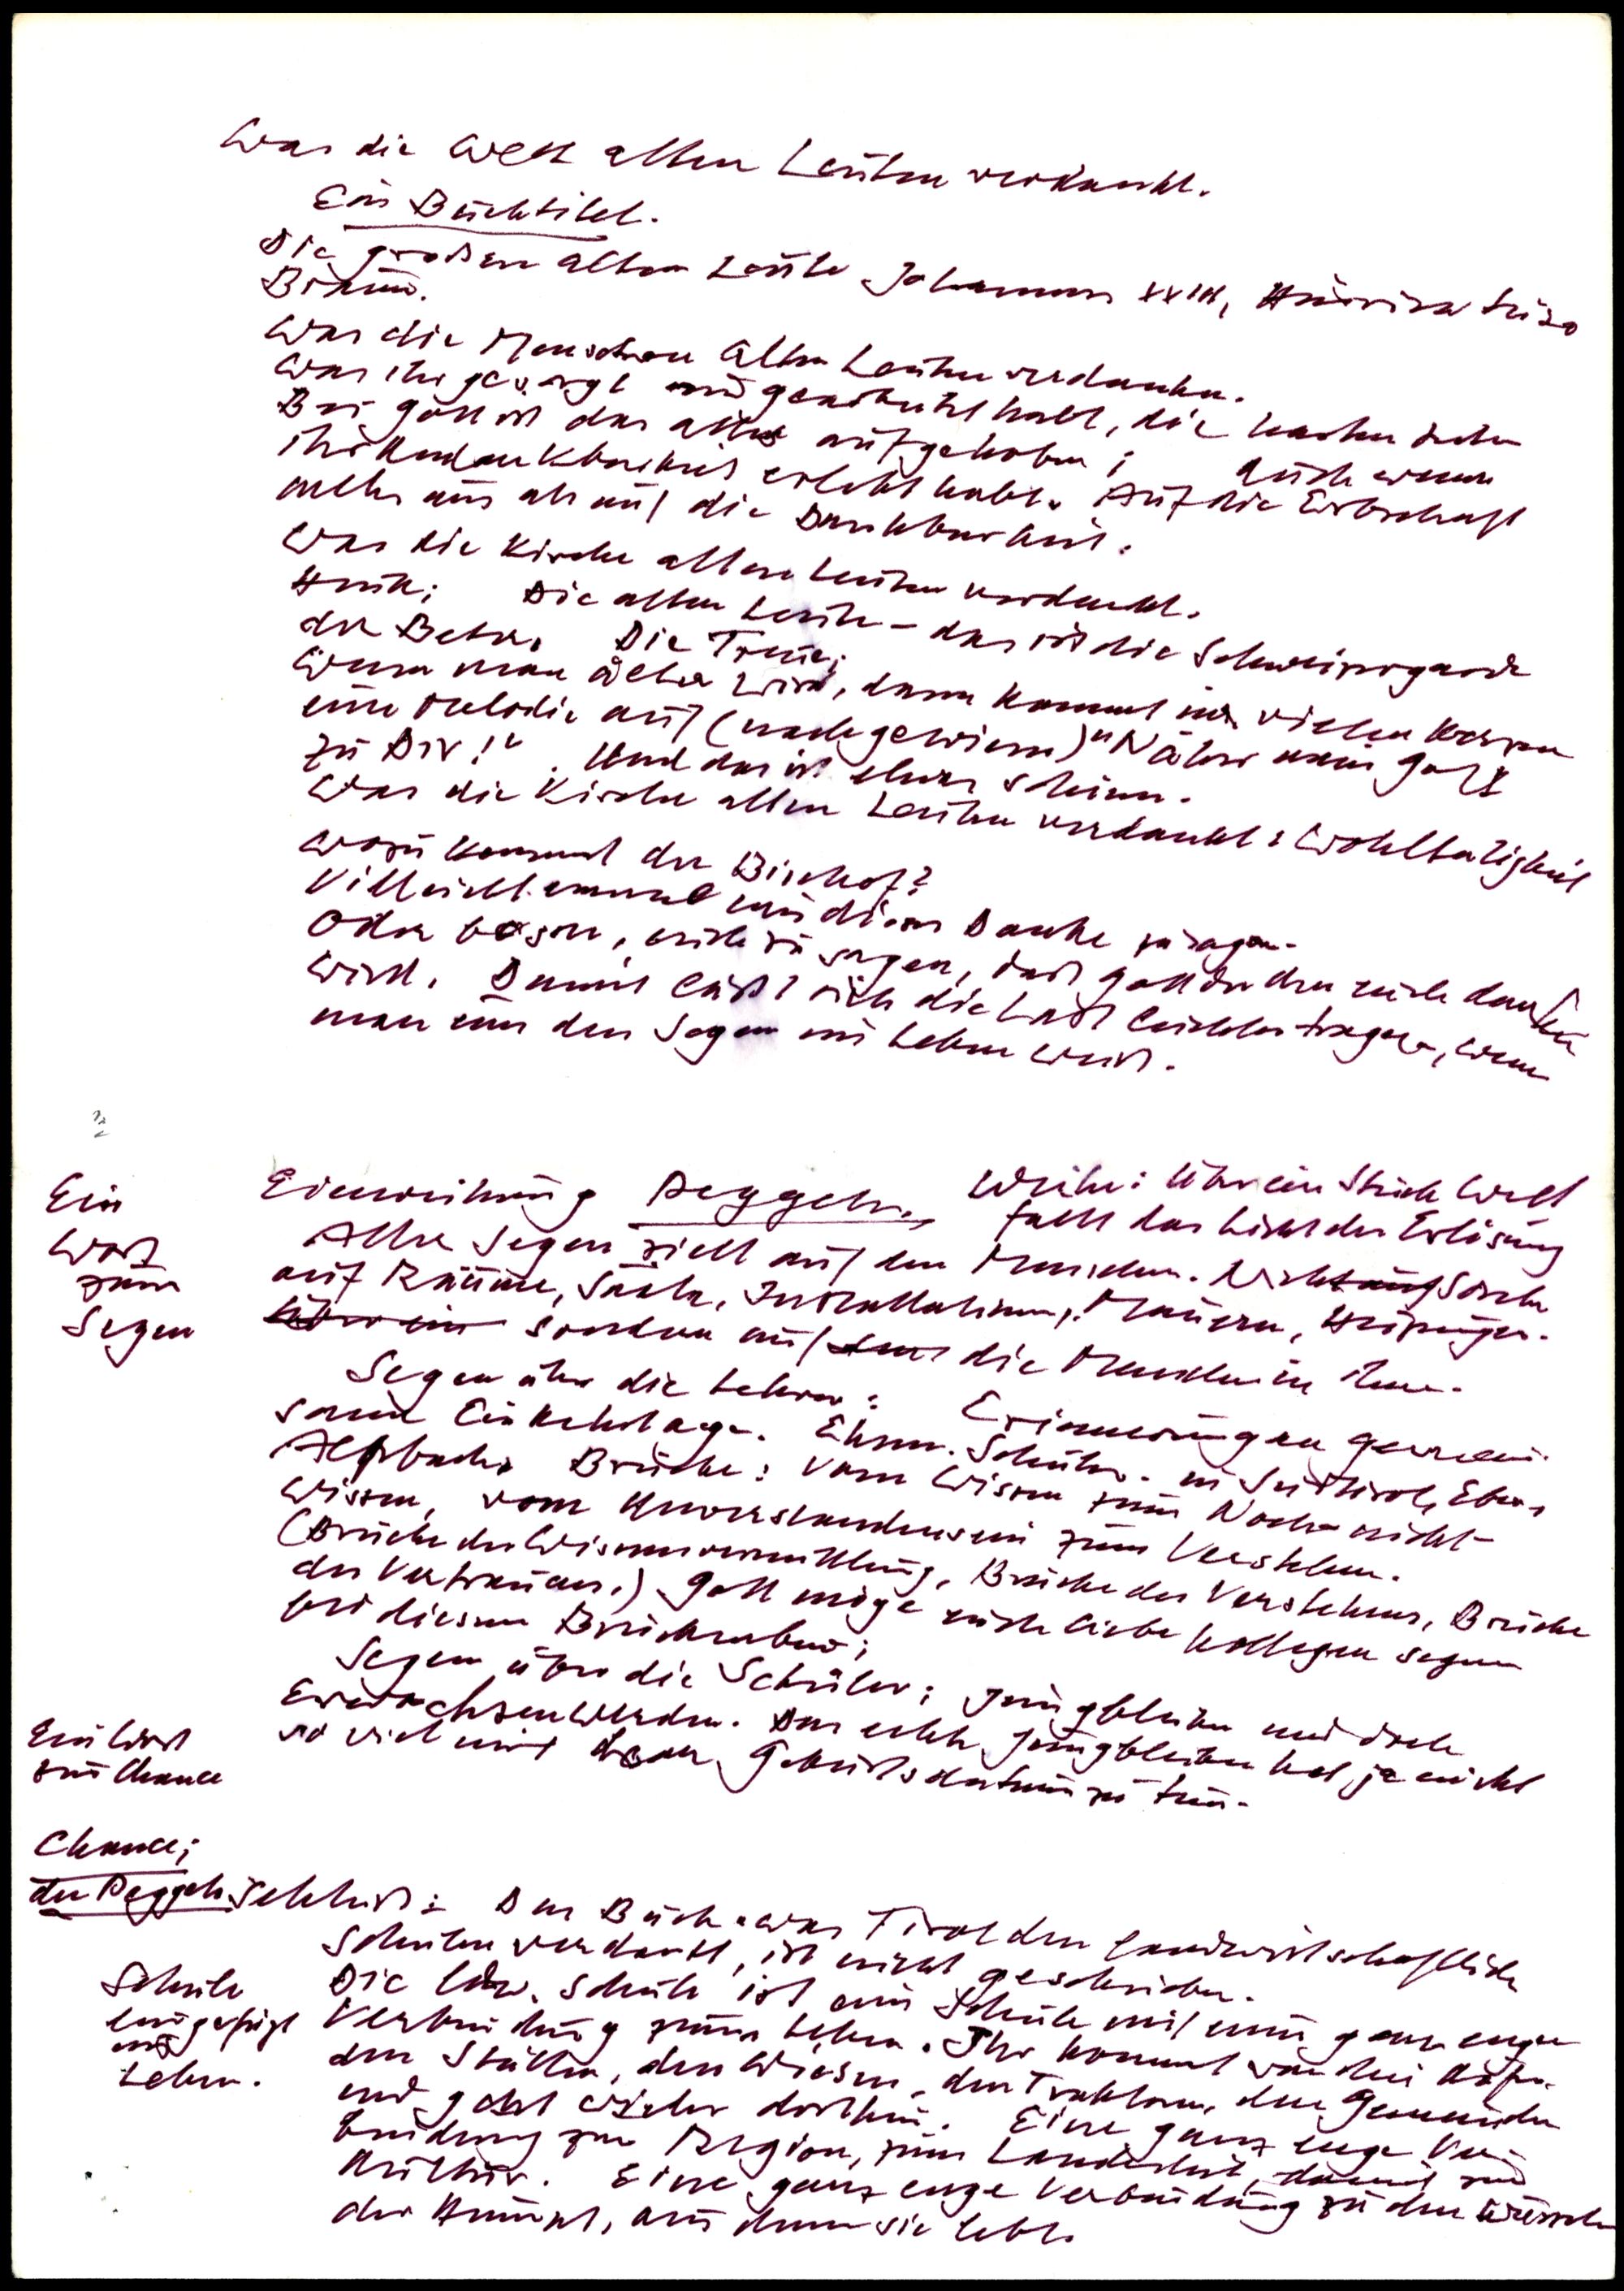 Was die Welt alten Leuten verdankt.
Ein Buchtitel.
Die großen alten Leute Johannes XXIII,
Was die Menschen alten Leuten verdanken.
Was ihr gesorgt und habt, die
Bei Gott ist das alles aufgehoben; Auch wenn
ihr Undankbarkeit erlebt habt. Auf die Erbschaft
mehr aus als auf die Dankbarkeit.
Was die Kirche alten Leuten verdankt.
Heute; Die alten Leute - das ist die Schweizergarde
der Beter. Die Treue;
Wenn man älter wird, dann kommt in vielen
eine Melodie auf "Näher mein Gott
zu Dir!". Und das ist etwas Schönes.
Was die Kirche alten Leuten verdankt: Wohltätigkeit
Wozu kommt der Bischof?
Vielleicht einmal um dieses Danke zu sagen.
Oder besser, euch zu sagen, daß Gott der Herr euch danken
wird. Damit läßt sich die Last leichter tragen, wenn
man um den Segen im Leben weiß.
Ein
Wort
zum
Segen
Einweihung Weihe: Über ein Stück Welt
fällt das Licht der Erlösung
Aller Segen zielt auf den Menschen. Nicht auf Sache
auf Räume, Säale, Installationen, Mauern, Heizungen.
Über ein sondern auf die Menschen in ihnen.
Segen über die Lehrer: Erinnerungen gemein-
same Einkehrtage. Ehem. Schüler. in Südtirol, Eben,
Alpbach. Brücke: Vom Wissen zum Noch nicht-
Wissen, vom Unverstandensein zum Verstehen.
(Brücke der Wissensvermittlung, Brücke des Verstehens, Brücke
des Vertrauens.) Gott möge euch liebe Kollegen segnen
bei diesem Brückenbau;
Segen über die Schüler; Jungbleiben und doch
Erwachsenwerden. Das echte Jungbleiben hat ja nicht
so viel mit dem Geburtsdatum zu tun.
Ein Wort
zur Chance
Chance;
der Schluß: Das Buch "Was Tirol den landwirtschaftlichen
Schulen verdankt, ist nicht geschrieben.
Schule
eingefügt
ins
Leben.
Die ldw. Schule ist eine Schule mit einer ganz engen
Verbindung zum Leben. Ihr kommt von den Höfen,
den Ställen, den Wiesen, den Traktoren, den Gemeinden
und geht wieder dorthin. Eine ganz enge Ver-
bindung zur Region, zum Landesteil, damit zur
Kultur. Eine ganz enge Verbindung zu den Wurzeln
der Heimat, aus denen sie lebt.